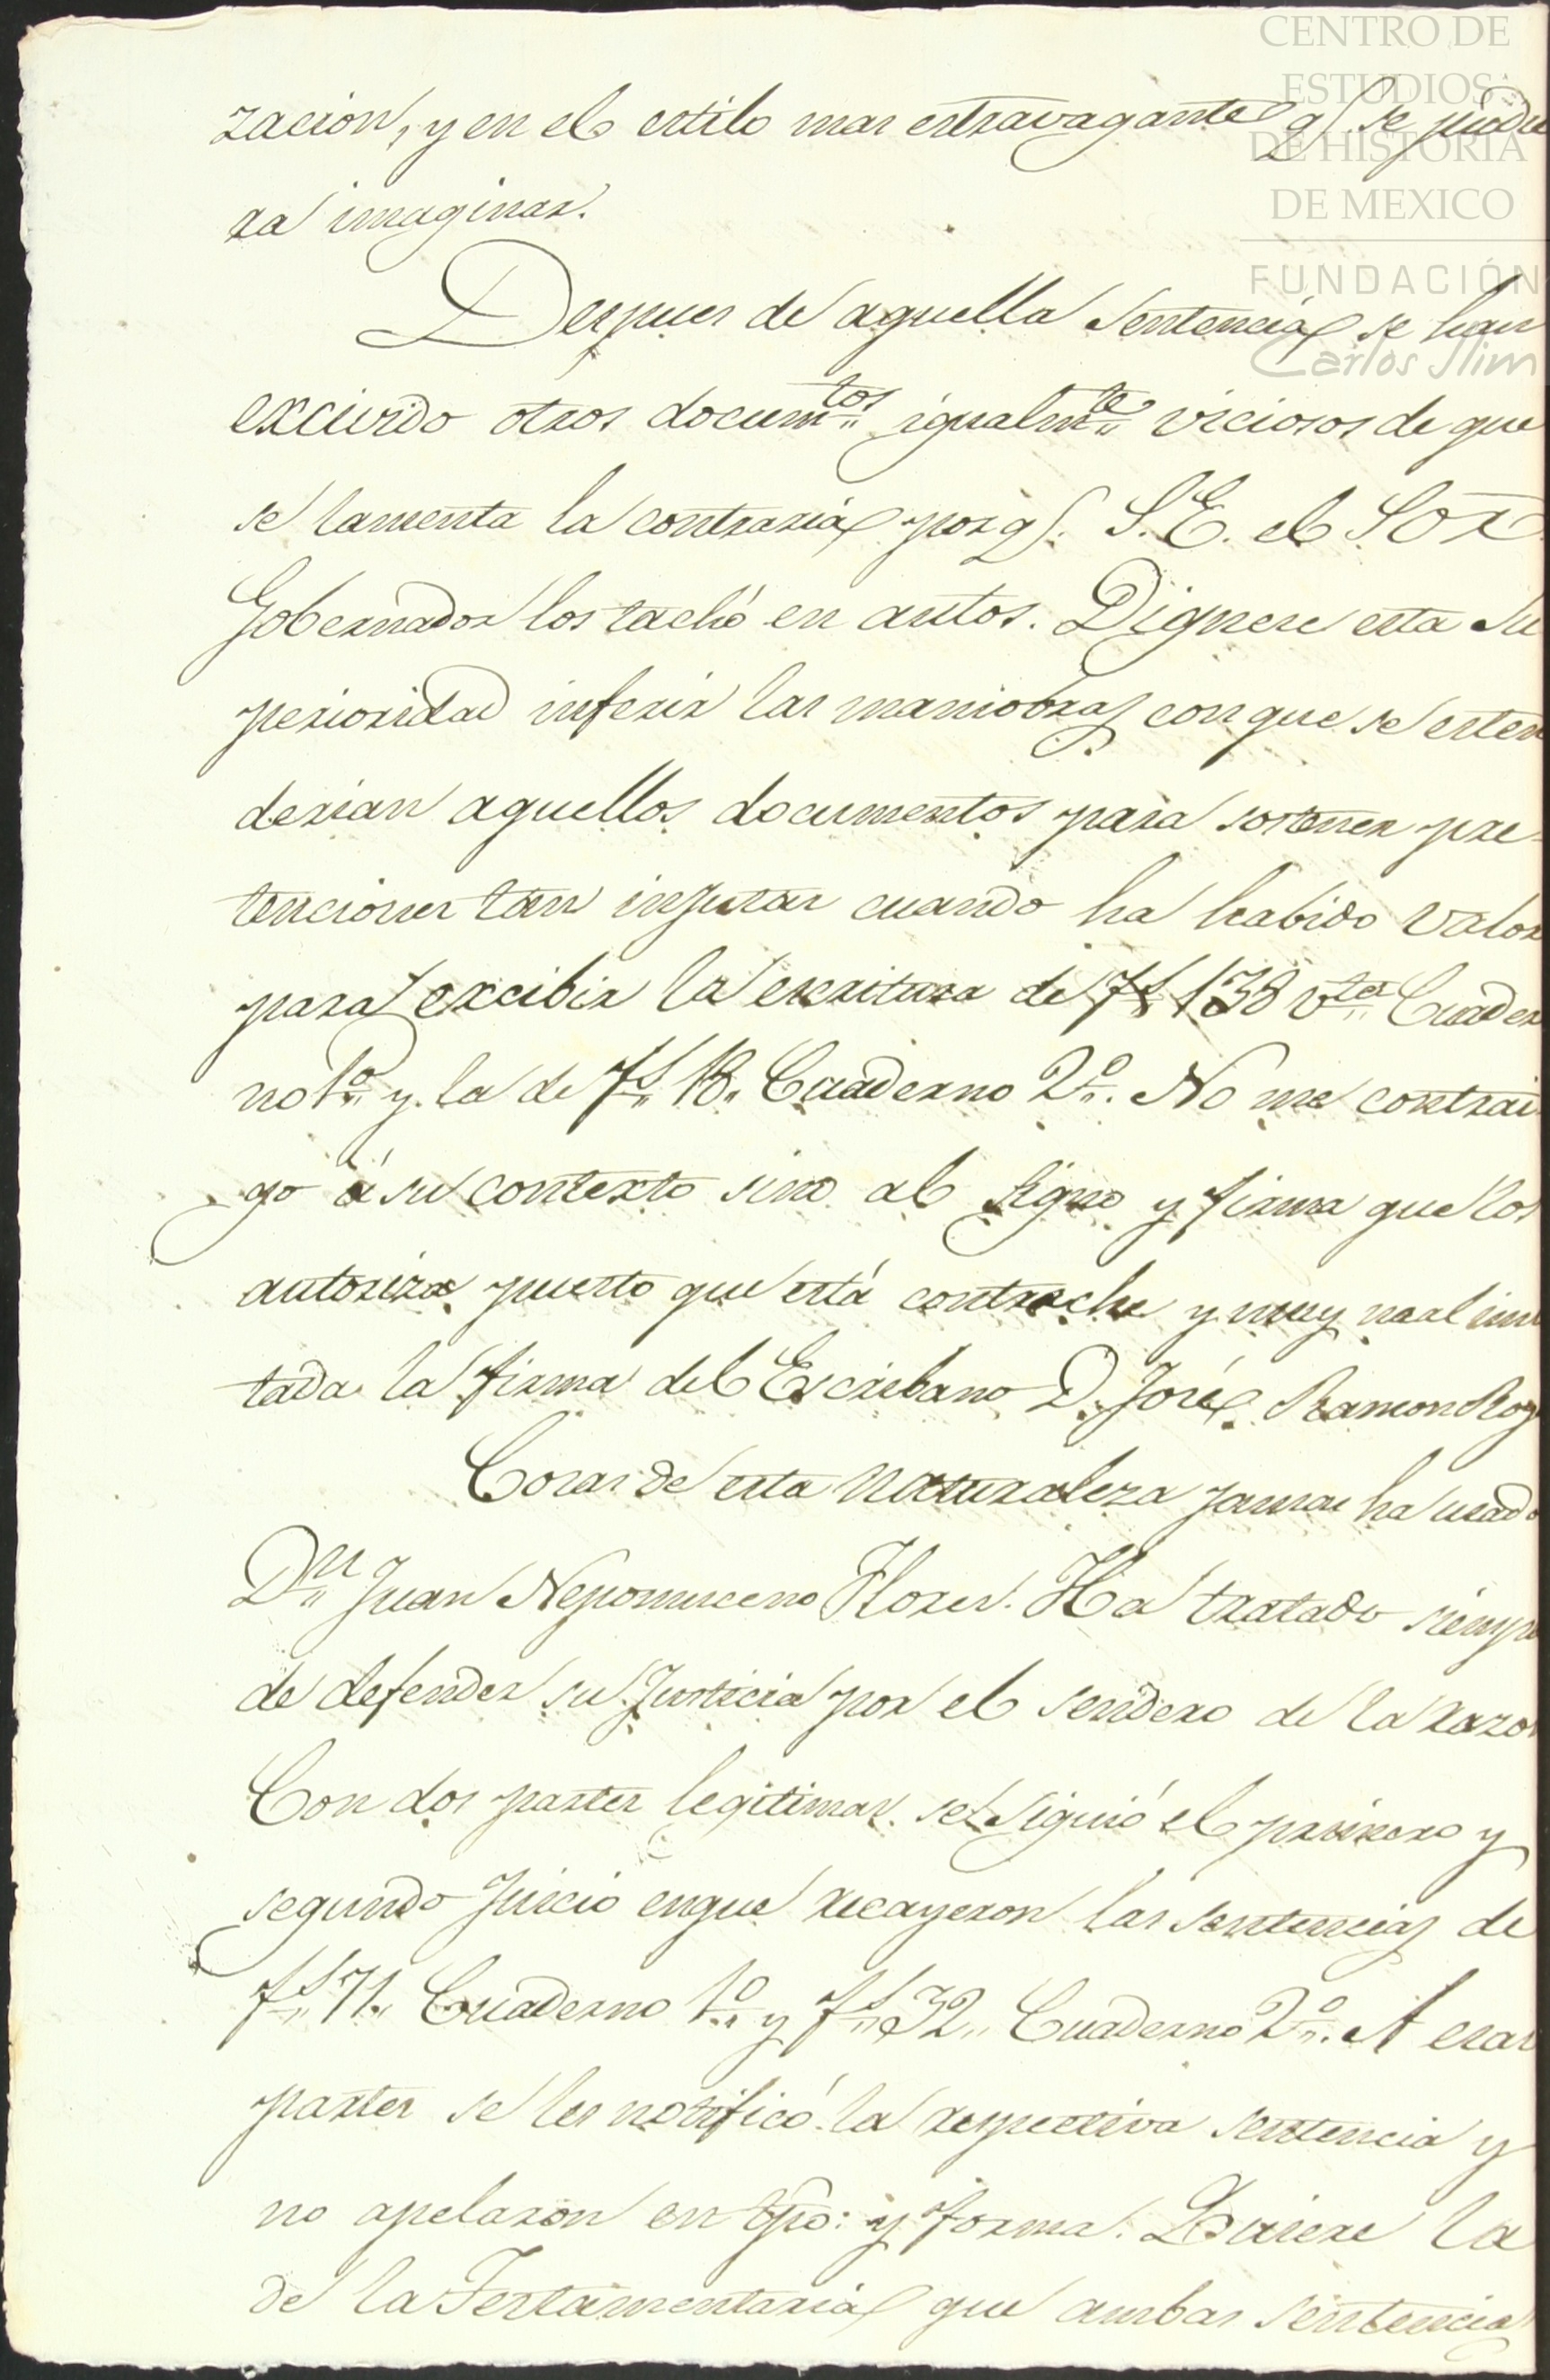 CENTRO DE
ESTUDIOS
DE HISTORIA
DE MEXICO
FUNDACIÓN
Carlos Slim
zacion, y en el estilo mas estravagante q.e se pudie
ra imaginar.
Despues de aquella Sentencia se han
excivido otros docum.tos igualm.te viciosos de que
se lamenta la contraria porq.e S.E. el Sor
Gobernador los tachó en autos. Dignese esta Su
perioridad inferir las maniobras con que se esten
derian aquellos documentos para sostener pre-
tenciones tan injustas cuando ha habido valor
para excibir la escritura de fs 138 vta Cuader
no 1.o y la de fs 18. Cuaderno 2.o No me contrai
go á su contexto sino al signo y firma que los
autoriza puesto que está contrache y muy mal imi
tada la firma del Escribano D. José Ramon Roy
Cosas de esta naturaleza jamas ha usado
Dn Juan Nepomuceno Flores. Ha tratado siempre
de defender su Justicia por el sendero de la razon
Con dos partes legitimas se siguió el primero y
segundo Juicio en que recayeron las sentencias de
fs 71. Cuaderno 1.o y fs 32. Cuaderno 2.o A esas
partes se les notificó la respectiva sentencia y
no apelaron en tpo: y forma. Quiere la
de la Testamentaria que ambas sentencias